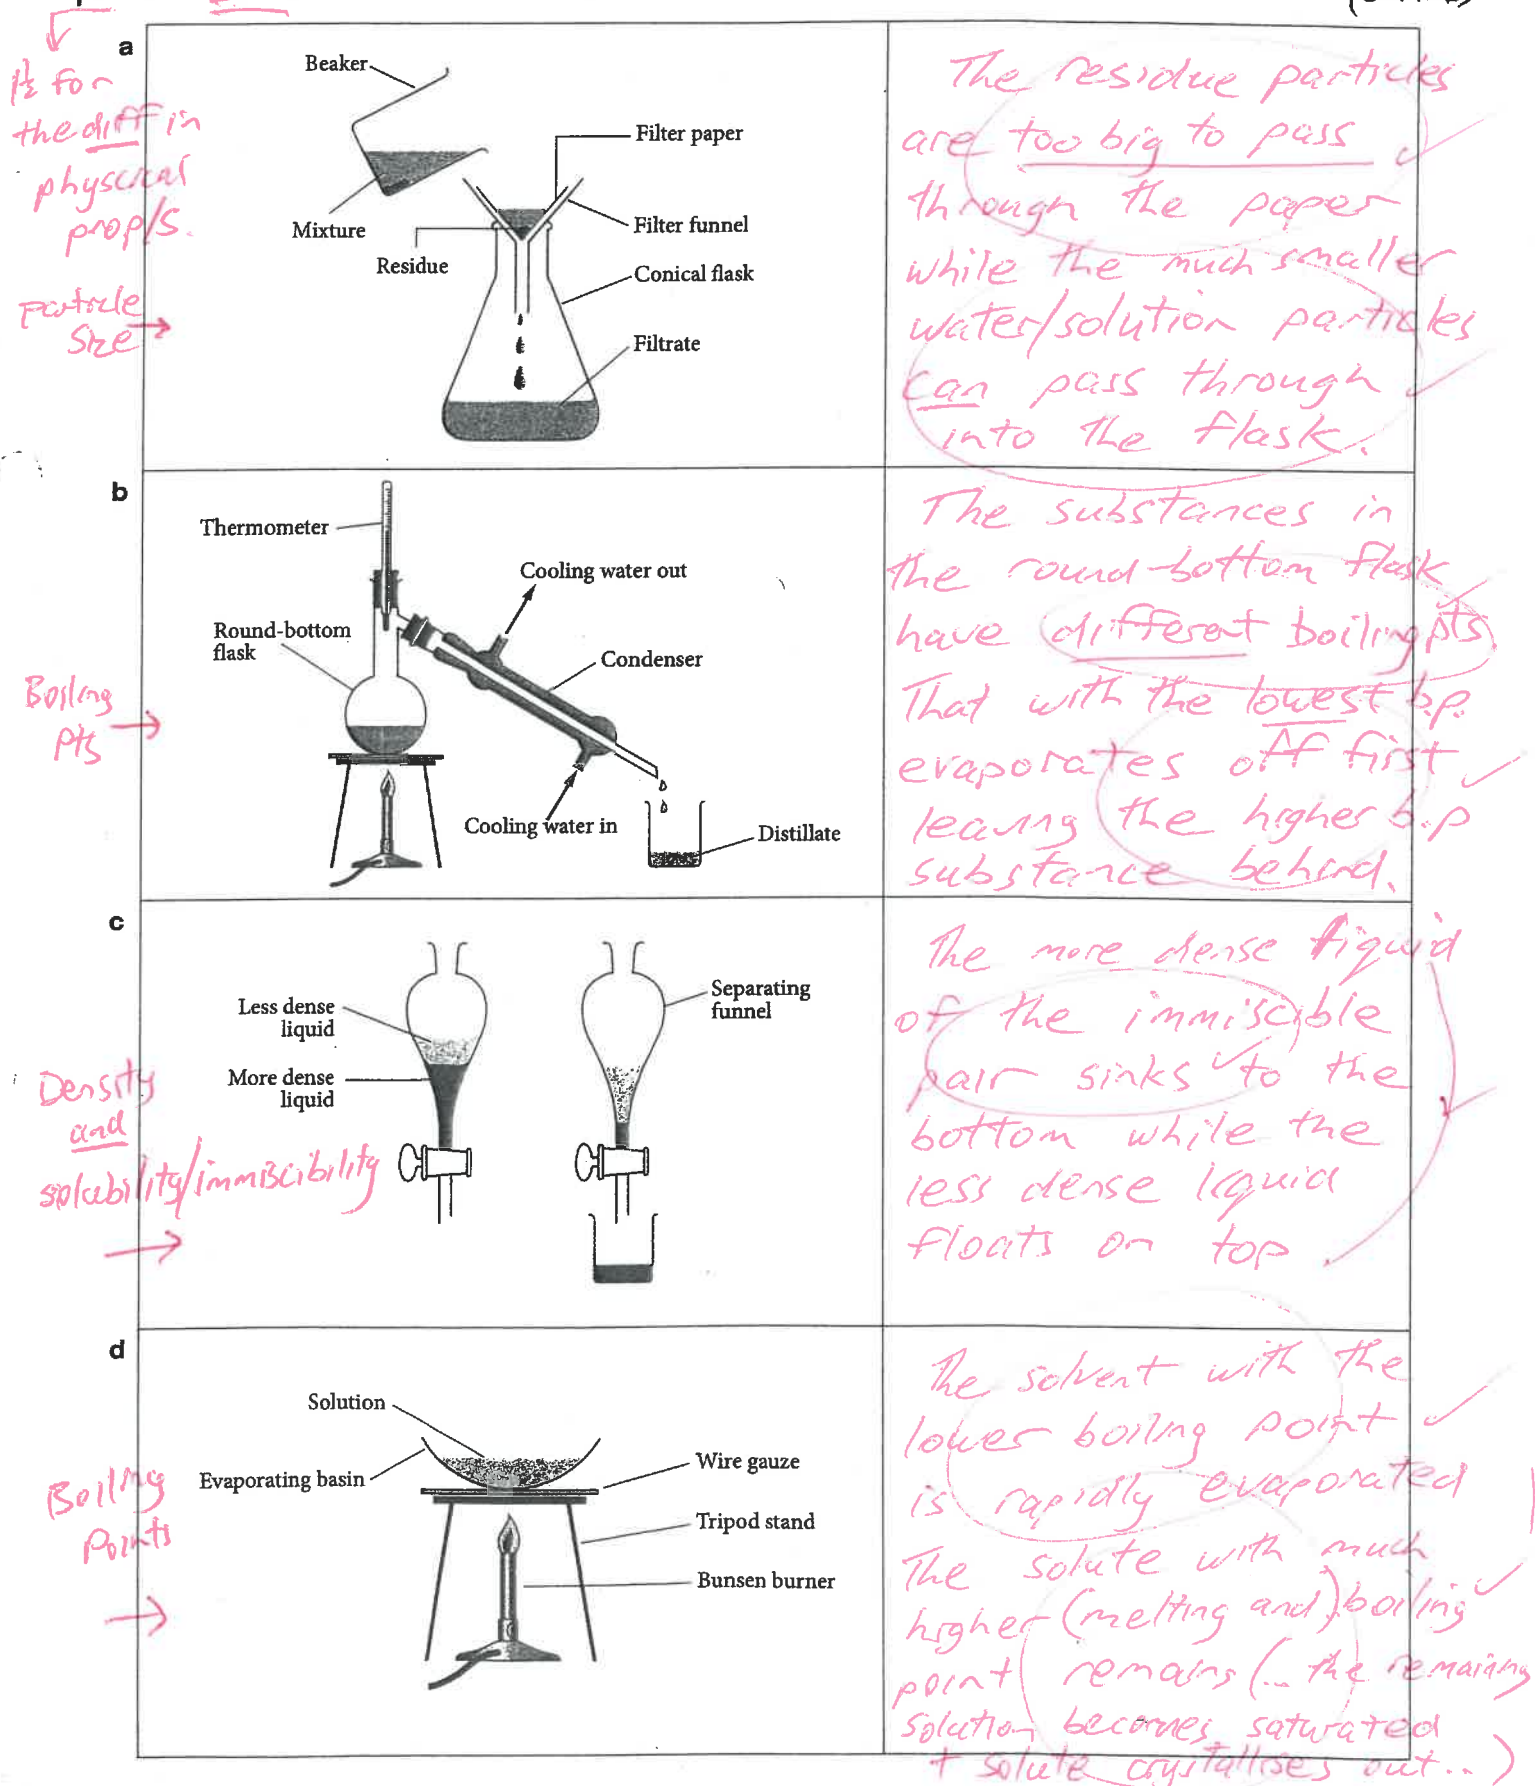 a
1½ for
the diff in
physical
prop/s.
Particle
Size
Beaker
Filter paper
Mixture
Filter funnel
Residue
Conical flask
Filtrate
The residue particles
are too big to pass
through the paper
while the much smaller
water/solution particles
can pass through
into the flask.
b
Boiling
Pts
Thermometer
Cooling water out
Round-bottom
flask
Condenser
Cooling water in
Distillate
The substances in
the round-bottom flask
have different boiling pts.
That with the lowest b.p.
evaporates off first
leaving the higher b.p
substance behind.
c
Density
and
solubility/immiscibility
Less dense
liquid
More dense
liquid
Separating
funnel
The more dense liquid
of the immiscible
pair sinks to the
bottom while the
less dense liquid
floats on top.
d
Boiling
Points
Solution
Evaporating basin
Wire gauze
Tripod stand
Bunsen burner
The solvent with the
lower boiling point
is rapidly evaporated
The solute with much
higher (melting and) boiling
point remains (... the remaining
solution becomes saturated
+ solute crystallises out...)